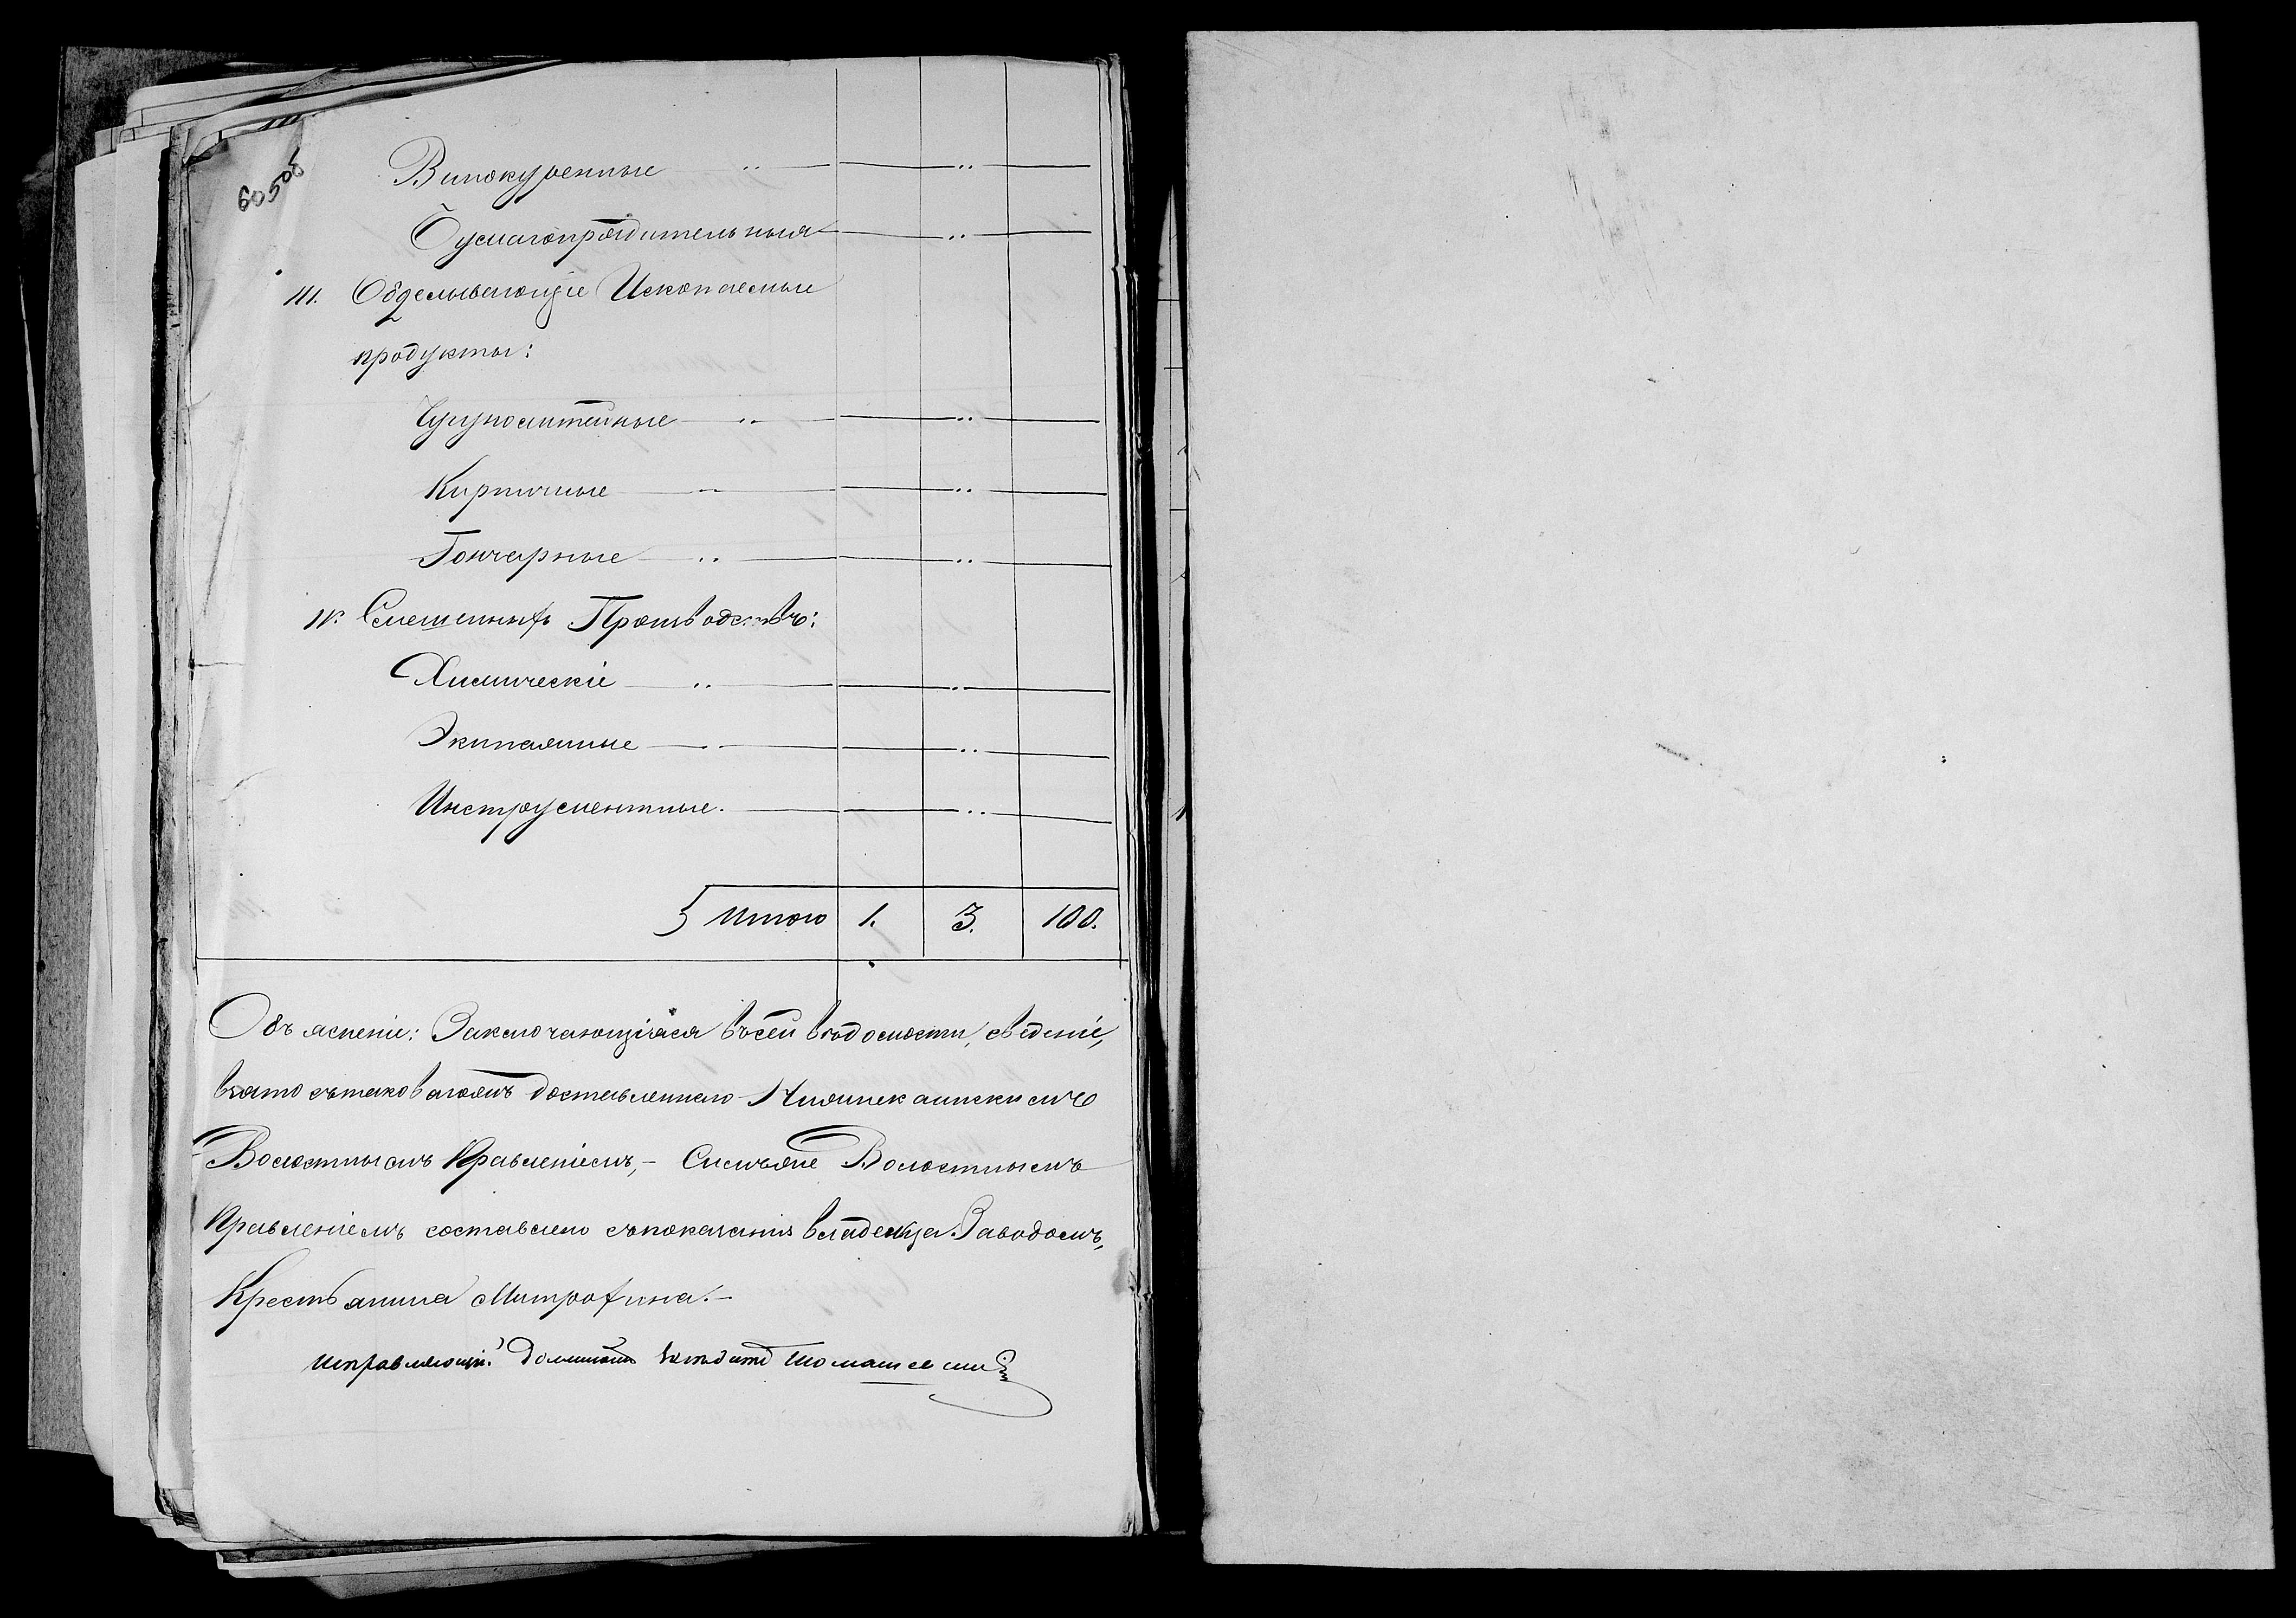 605об
Винокуренные — „ — — „ —
Бумагопрядительныя — „ —
III. Обделывающіе Ископаемыя
продукты:
Чугунолитейные — „ — — „ —
Кирпичные — „ — — „ —
Гончарные — „ — — „ —
IV. Смешенныхъ Производствъ:
Химическіе — „ — — „ —
Экипажные — „ — — „ —
Инструментные. — — „ —
Итого 1. 3. 100.
Объясненіе: Заключающіяся въ сей вѣдомости, сведеніе,
взято съ таковагожъ доставленнаго
Волостнымъ Правленіемъ, – Волостнымъ
Правленіемъ составлено съ показанія владельца Заводомъ,
Крестьянина Митрофина. –
Исправляющій должность